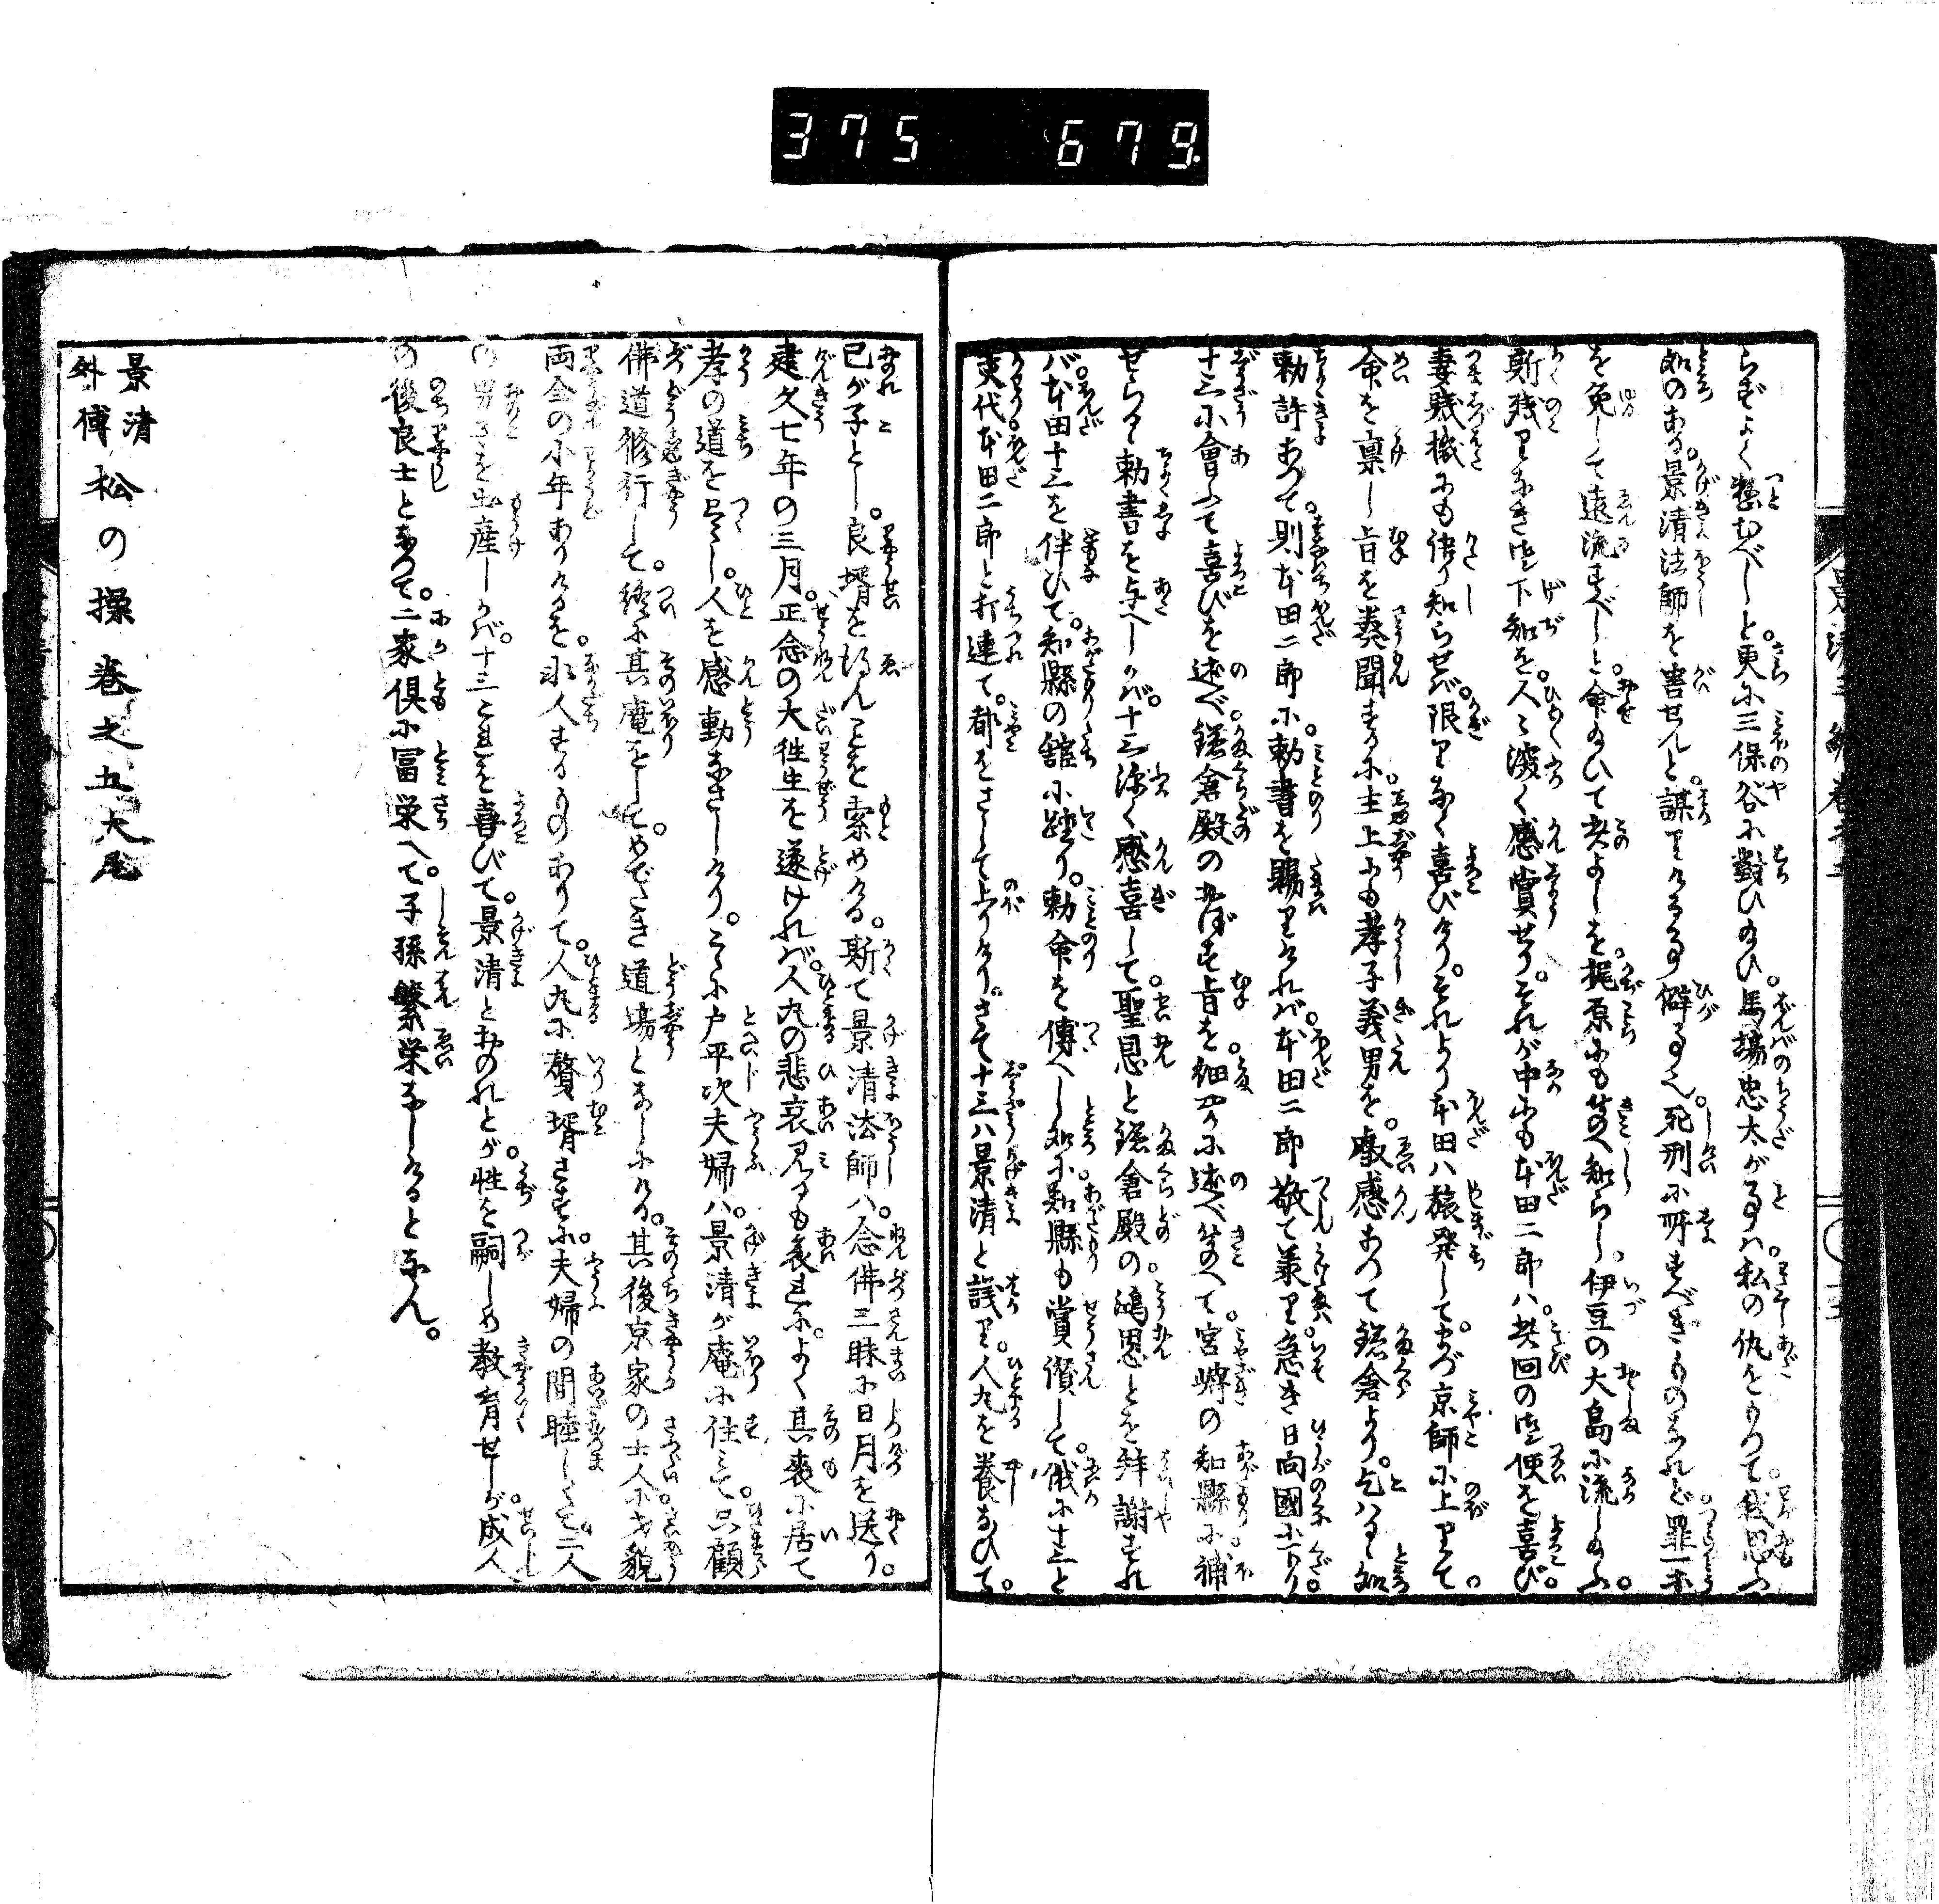 375 679.
らずよく懋むべしと。更に三保谷に對ひ給ひ。馬場忠太が事は私の仇をもつて。我思ふ
処のある。景清法師を害せんと。謀りけるは僻事也。死刑に所すべきものなれど。罪一等
を免して遠流すべしと。命給ひて其よしを。梶原にも告知らし。伊豆の大島に流し給ふ。
斯残りなき御下知を。人々深く感賞せり。それが中にも本田二郎ハ。其回の御使を喜び。
妻賤機にも傳り知らせバ。限りなく喜びけり。それより本田ハ旅発して。まづ京師に上りて。
命を禀し旨を奏聞するに。主上にも孝子義男を。叡感あつて鎌倉より。乞ハるゝ処
勅許あつて。則本田二郎に。勅書を賜りければ。本田二郎敬て義り。急き日向國に下り。
十三に會ふて喜びを述べ。鎌倉殿のおぼす旨を。細かに述べ告て。宮崎の知縣に。補
せらるゝ勅書を与へしかバ。十三深く感喜して。聖恩と鎌倉殿の。鴻恩とを拜謝すれ
バ。本田十三を伴ひて。知縣の舘に到り。勅命を傳へし処に。知縣も賞讃して。俄に十三と
交代。本田二郎と打連て。都をさして上りけり。さて十三ハ景清と議り。人丸を養なひて。
己が子とし。良壻を得んことを索めける。斯て景清法師ハ。念佛三昧に日月を送り。
建久七年の三月。正念の大往生を遂けれバ。人丸の悲哀見るも哀れに。よく其喪に居て
孝の道を尽し。人を感動なさしけり。こゝに戸平次夫婦ハ。景清が庵に住て。只顧
佛道修行して。終に其庵をして。めでたき道場となしにける。其後京家の士人に才貌
両全の少年ありけるを。冰人するものありて。人丸に贅壻さすに。夫婦の間睦しくて二人
の男子を出産しかバ。十三これを喜びて。景清とおのれとが。性を嗣しめ教育せしが。成人
の後良士となつて。二家倶に冨栄へて。子孫繁栄なしけるとなん。
景清外傳 松の操 巻之五大尾